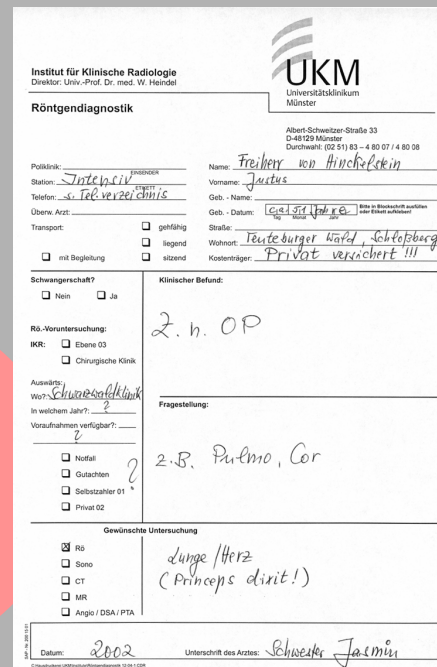 UKM
Universitätsklinikum
Münster
Institut für Klinische Radiologie
Direktor: Univ.-Prof. Dr. med. W. Heindel
Röntgendiagnostik
Albert-Schweitzer-Straße 33
D-48129 Münster
Durchwahl: (02 51) 83 – 4 80 07 / 4 80 08
Poliklinik:
EINSENDER
Station: Intensiv
ETIKETT
Telefon: s. Tel.verzeichnis
Überw. Arzt:
Transport:
gehfähig
liegend
mit Begleitung
sitzend
Name: Freiherr von Hinckelstein
Vorname: Justus
Geb. - Name:
Geb. - Datum: ca. 51 Jahre
Bitte in Blockschrift ausfüllen
oder Etikett aufkleben!
Tag Monat Jahr
Straße:
Wohnort: Teuteburger Wald, Schloßberg
Kostenträger: Privat versichert !!!
Schwangerschaft?
Nein Ja
Rö.-Voruntersuchung:
IKR: Ebene 03
Chirurgische Klinik
Auswärts:
Wo?: Schwarzwaldklinik
In welchem Jahr?: ?
Voraufnahmen verfügbar?:
?
Notfall
Gutachten
Selbstzahler 01
Privat 02
?
Klinischer Befund:
Z. n. OP
Fragestellung:
z.B. Pulmo, Cor
Gewünschte Untersuchung
Rö
Sono
CT
MR
Angio / DSA / PTA
Lunge / Herz
(Princeps dixit!)
Datum: 2002
Unterschrift des Arztes: Schwester Jasmin